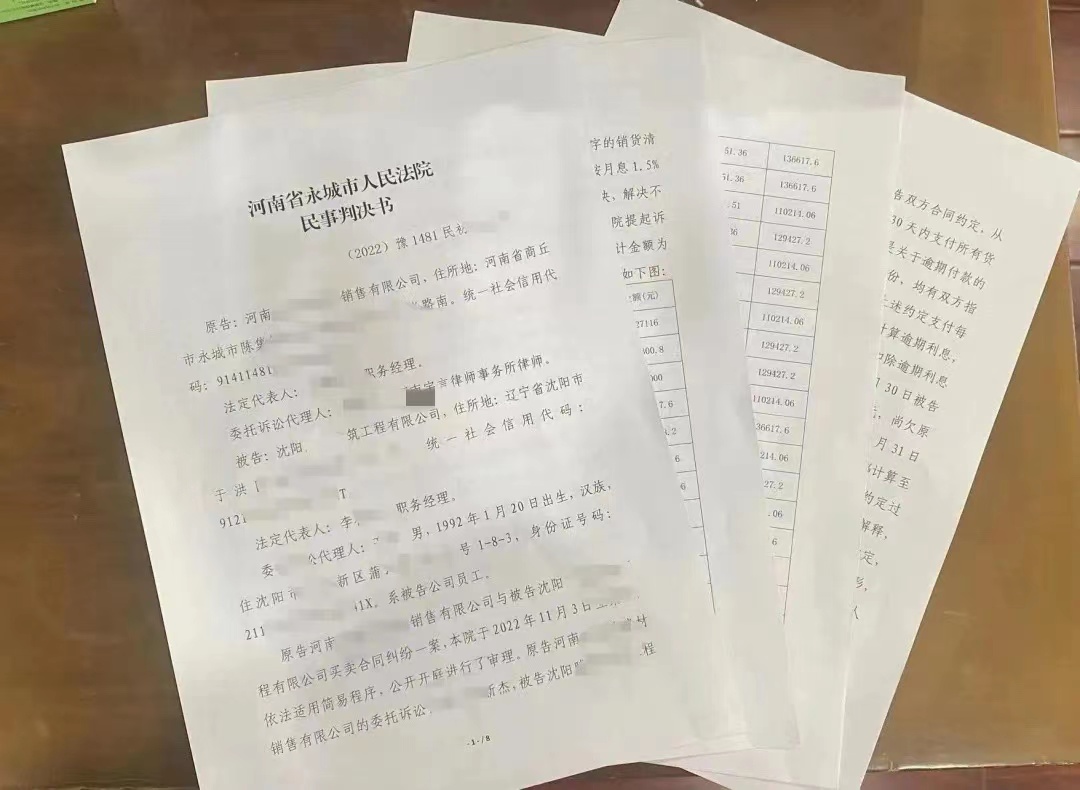 河南省永城市人民法院
民事判决书
（2022）豫1481民初
原告：河南 销售有限公司，住所地：河南省商丘
市永城市陈集 路南。统一社会信用代
码：91411481
法定代表人： 职务经理。
委托诉讼代理人： 律师事务所律师。
被告：沈阳 筑工程有限公司，住所地：辽宁省沈阳市
于洪 统一社会信用代码：
9121
法定代表人：李 职务经理。
委 代理人： 男，1992年1月20日出生，汉族，
住沈阳市 新区蒲 号1-8-3，身份证号码：
211 1X。系被告公司员工。
原告河南 销售有限公司与被告沈阳
程有限公司买卖合同纠纷一案，本院于2022年11月3日
依法适用简易程序，公开开庭进行了审理。原告河南
销售有限公司的委托诉讼 杰，被告沈阳 程
-1-/8
字的销货清
按月息1.5%
决、解决不
院提起诉
计金额为
如下图：
额(元)
27116
300.8
000
7.6
.2
6
51.36 136617.6
51.36 136617.6
.51 110214.06
36 129427.2
110214.06
129427.2
110214.06
129427.2
129427.2
110214.06
136617.6
214.06
27.2
.06
6
告双方合同约定，从
30天内支付所有货
是关于逾期付款的
份，均有双方指
上述约定支付每
计算逾期利息，
扣除逾期利息
月30日被告
元，尚欠原
月31日
计算至
约定过
解释，
定，